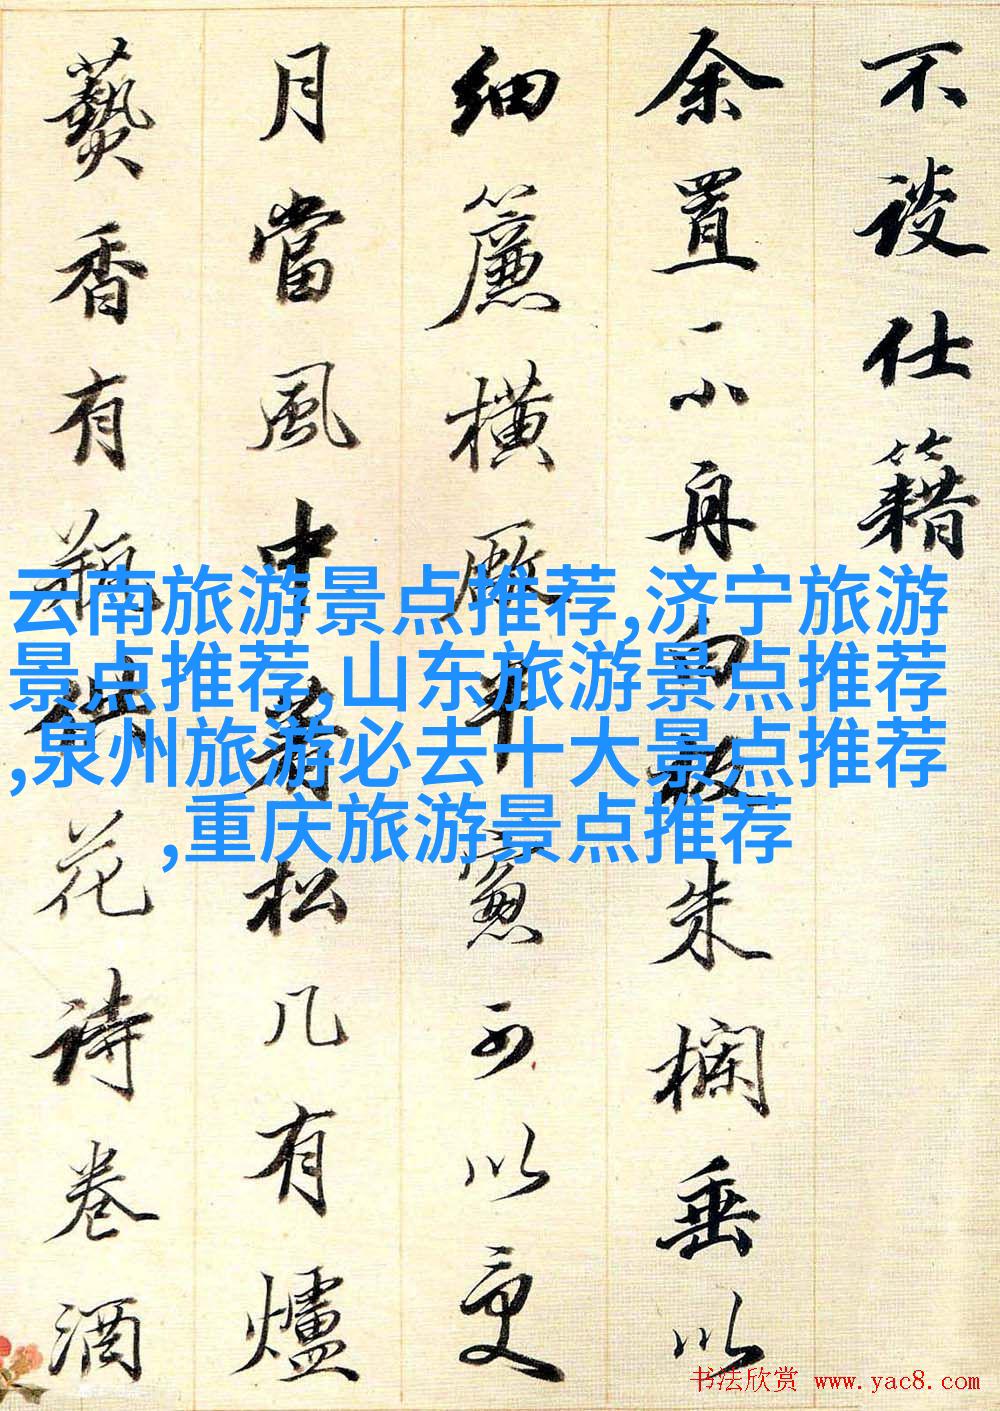 不談仕籍
余置一小舟白板朱欄垂以
細簾橫厰半窻可以受
月當風中著松几有爐
爇香有瓶供花詩卷酒
云南旅游景点推荐,济宁旅游
景点推荐,山东旅游景点推荐
,泉州旅游必去十大景点推荐
,重庆旅游景点推荐
书法欣赏 www.yac8.com